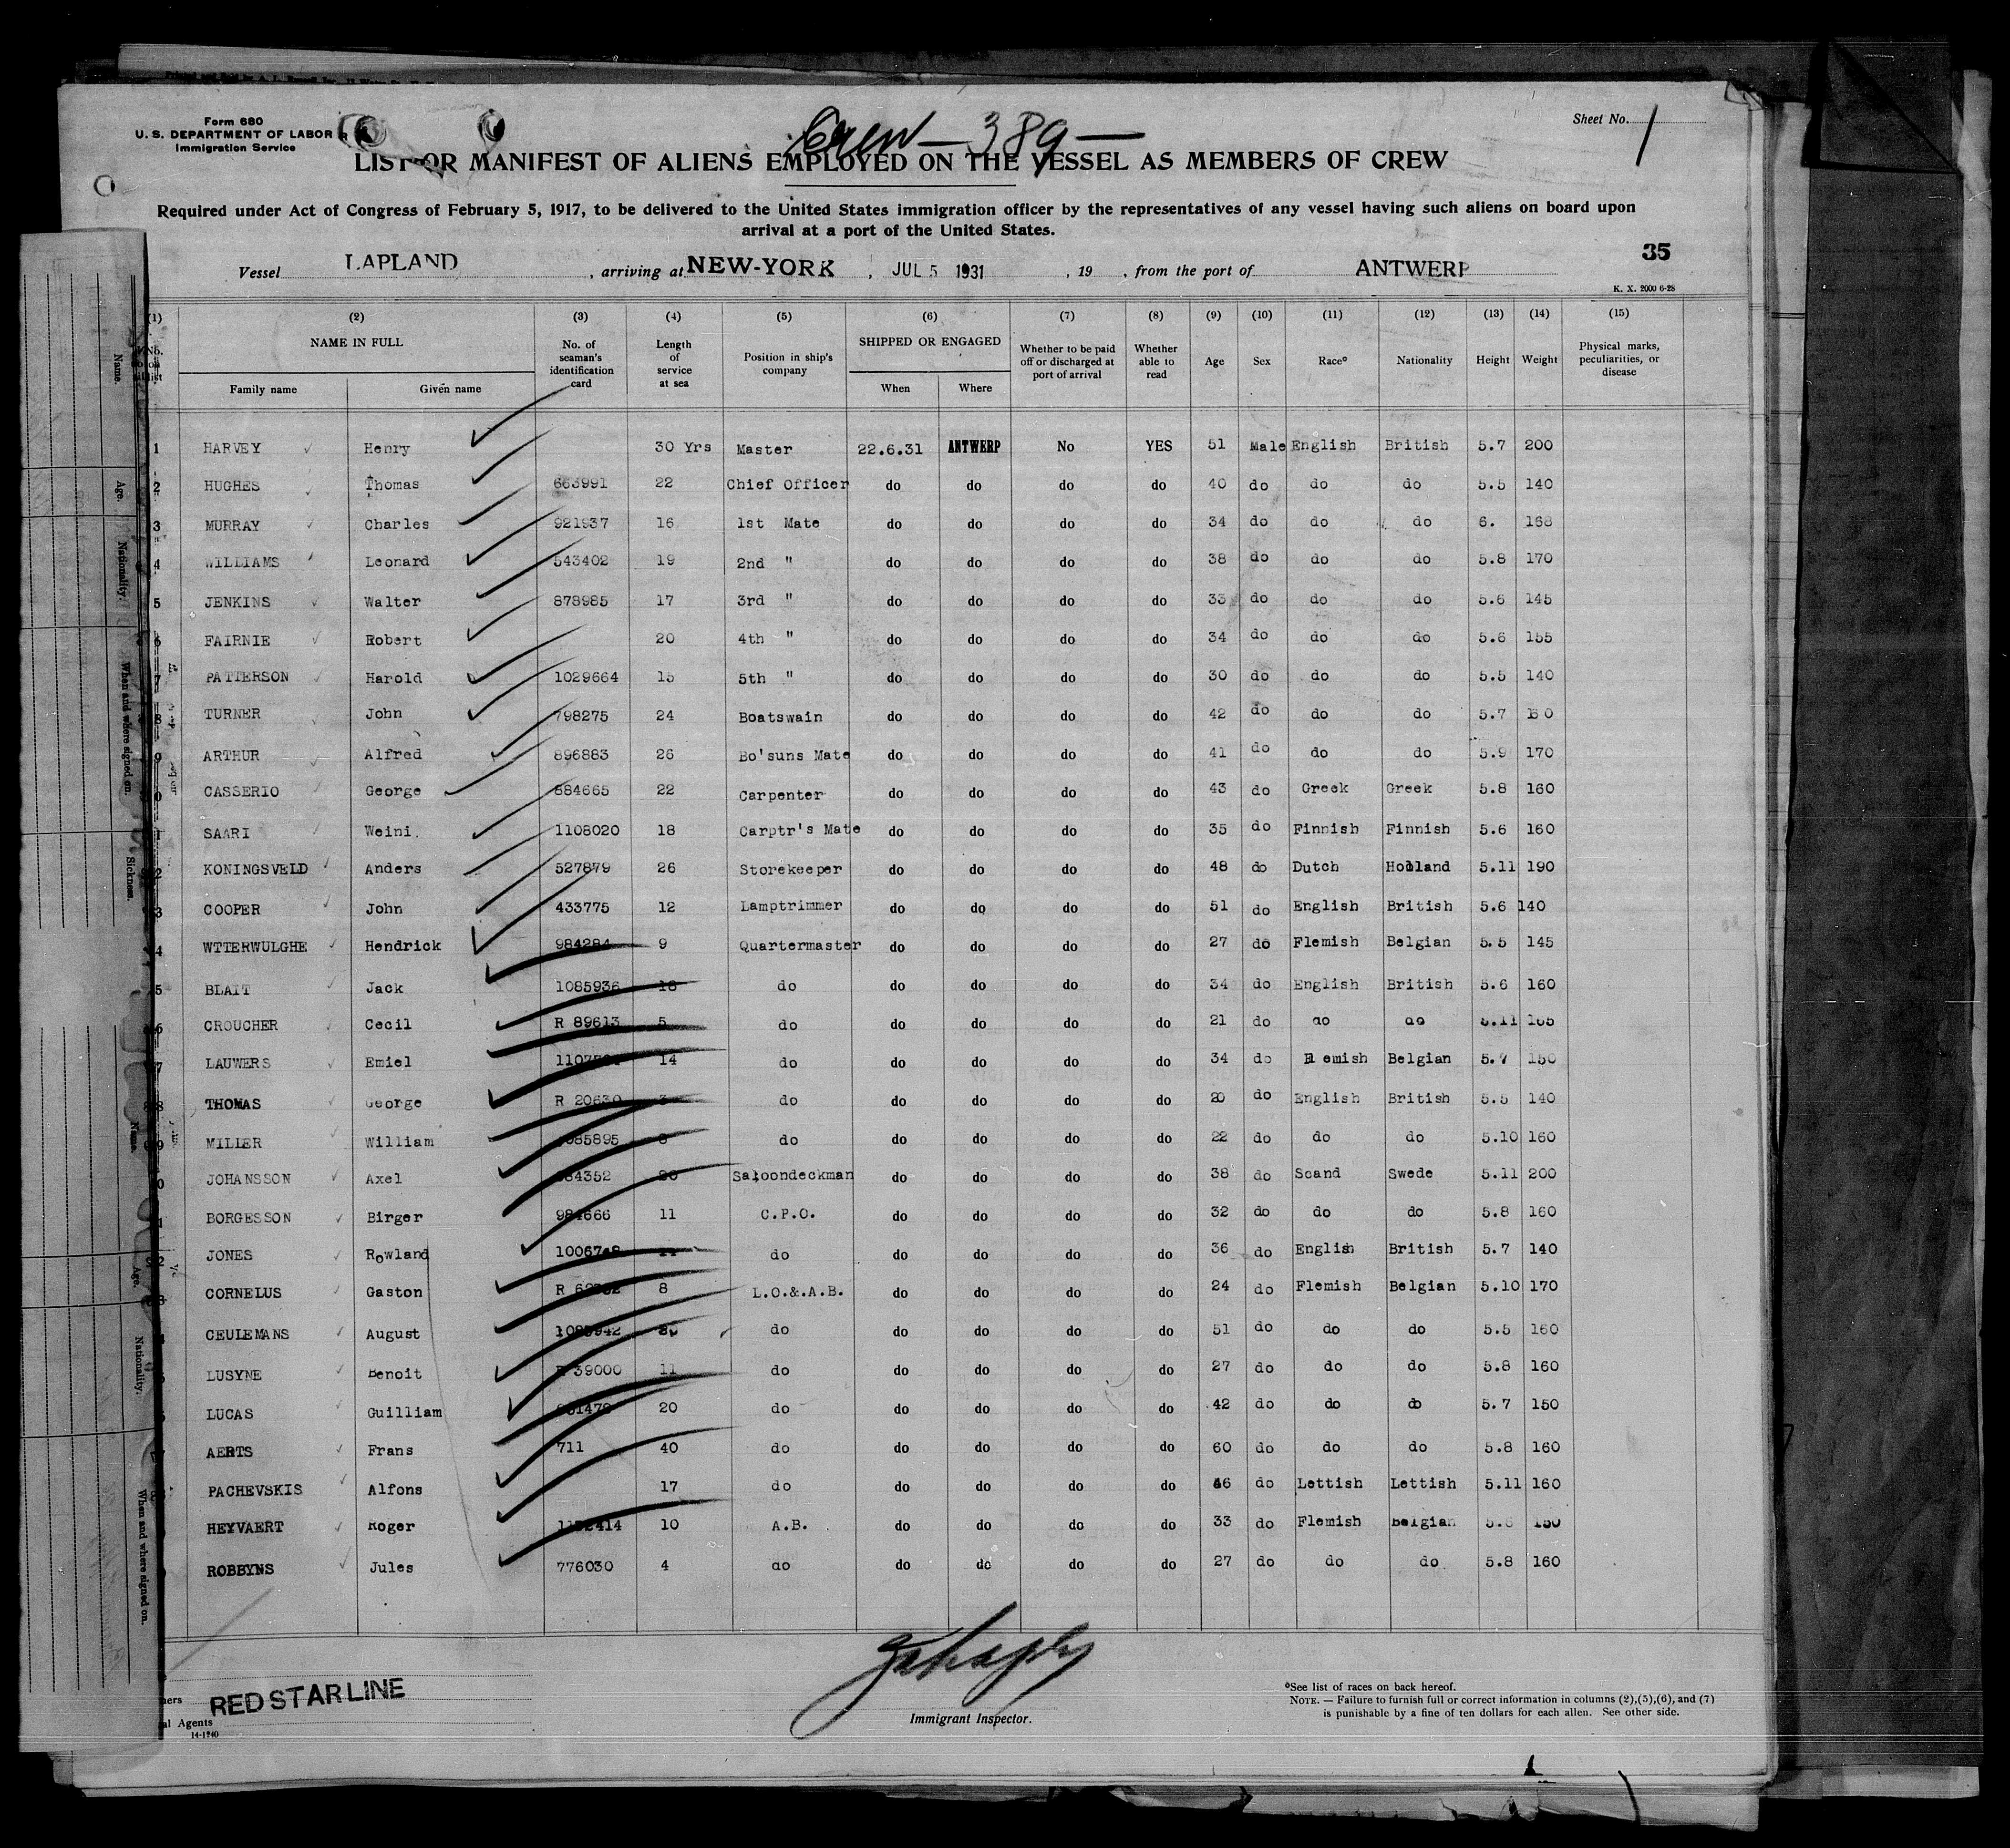 Form 680
U. S. DEPARTMENT OF LABOR
Immigration Service
Crew — 389 —
Sheet No. 1
LIST OR MANIFEST OF ALIENS EMPLOYED ON THE VESSEL AS MEMBERS OF CREW
Required under Act of Congress of February 5, 1917, to be delivered to the United States immigration officer by the representatives of any vessel having such aliens on board upon
arrival at a port of the United States.
35
Vessel LAPLAND, arriving at NEW-YORK, JUL 5 1931, 19 , from the port of ANTWERP
K. X. 2000 6-28
(1) (2) (3) (4) (5) (6) (7) (8) (9) (10) (11) (12) (13) (14) (15)
NAME IN FULL Family name Given name No. of seaman's identification card Length of service at sea Position in ship's company SHIPPED OR ENGAGED When Where Whether to be paid off or discharged at port of arrival Whether able to read Age Sex Race* Nationality Height Weight Physical marks, peculiarities, or disease
1 HARVEY Henry 30 Yrs Master 22.6.31 ANTWERP No YES 51 Male English British 5.7 200
2 HUGHES Thomas 663991 22 Chief Officer do do do do 40 do do do 5.5 140
3 MURRAY Charles 921937 16 1st Mate do do do do 34 do do do 6. 168
4 WILLIAMS Leonard 543402 19 2nd " do do do do 38 do do do 5.8 170
5 JENKINS Walter 878985 17 3rd " do do do do 33 do do do 5.6 145
6 FAIRNIE Robert 20 4th " do do do do 34 do do do 5.6 155
7 PATTERSON Harold 1029664 15 5th " do do do do 30 do do do 5.5 140
8 TURNER John 798275 24 Boatswain do do do do 42 do do do 5.7
9 ARTHUR Alfred 896883 26 Bo'suns Mate do do do do 41 do do do 5.9 170
0 CASSERIO George 884665 22 Carpenter do do do do 43 do Greek Greek 5.8 160
1 SAARI Weini. 1108020 18 Carptr's Mate do do do do 35 do Finnish Finnish 5.6 160
2 KONINGSVELD Anders 527879 26 Storekeeper do do do do 48 do Dutch Holland 5.11 190
3 COOPER John 433775 12 Lamptrimmer do do do do 51 do English British 5.6 140
4 WTTERWULGHE Hendrick 984284 9 Quartermaster do do do do 27 do Flemish Belgian 5.5 145
5 BLAIT Jack 1085936 18 do do do do do 34 do English British 5.6 160
6 CROUCHER Cecil R 89613 5 do do do do do 21 do do do 5.11 155
7 LAUWERS Emiel 14 do do do do do 34 do Flemish Belgian 5.7 150
8 THOMAS George R 20630 3 do do do do do 20 do English British 5.5 140
9 MILLER William 8 do do do do do 22 do do do 5.10 160
0 JOHANSSON Axel Saloondeckman do do do do 38 do Scand Swede 5.11 200
1 BORGESSON Birger 984666 11 C.P.O. do do do do 32 do do do 5.8 160
2 JONES Rowland do do do do do 36 do English British 5.7 140
3 CORNELUS Gaston 8 L.O.&.A.B. do do do do 24 do Flemish Belgian 5.10 170
CEULEMANS August do do do do do 51 do do do 5.5 160
LUSYNE Benoit R 39000 11 do do do do do 27 do do do 5.8 160
LUCAS Guilliam 20 do do do do do 42 do do do 5.7 150
AERTS Frans 711 40 do do do do do 60 do do do 5.8 160
PACHEVSKIS Alfons 17 do do do do do do Lettish Lettish 5.11 160
HEYVAERT Roger 10 A.B. do do do do 33 do Flemish Belgian 5.6 150
ROBBYNS Jules 776030 4 do do do do do 27 do do do 5.8 160
RED STAR LINE
Agents
14-1240
Immigrant Inspector.
*See list of races on back hereof.
NOTE. — Failure to furnish full or correct information in columns (2),(5),(6), and (7)
is punishable by a fine of ten dollars for each alien. See other side.
Name.
Age.
Nationality.
When and where signed on.
Sickness.
Name.
Age.
Nationality.
When and where signed on.